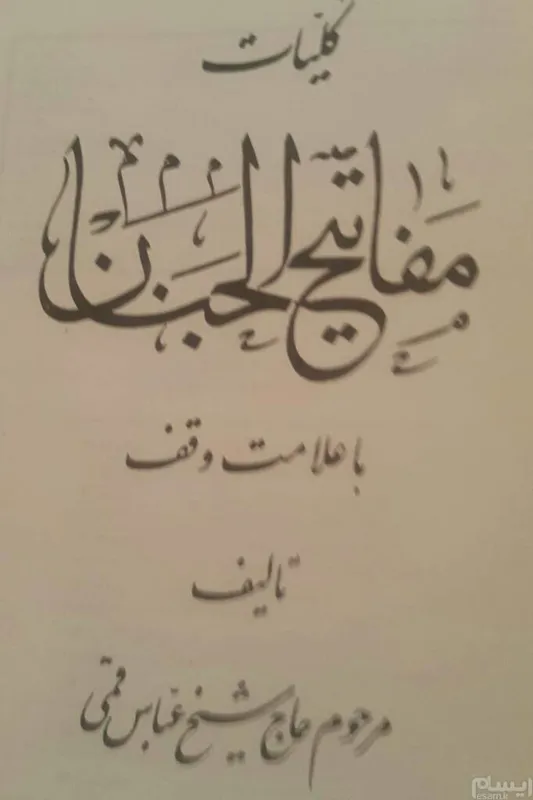 کلیات
مفاتیح الجنان
با علامت وقف
تالیف
مرحوم حاج شیخ عباس قمی
ایسام
esam.ir